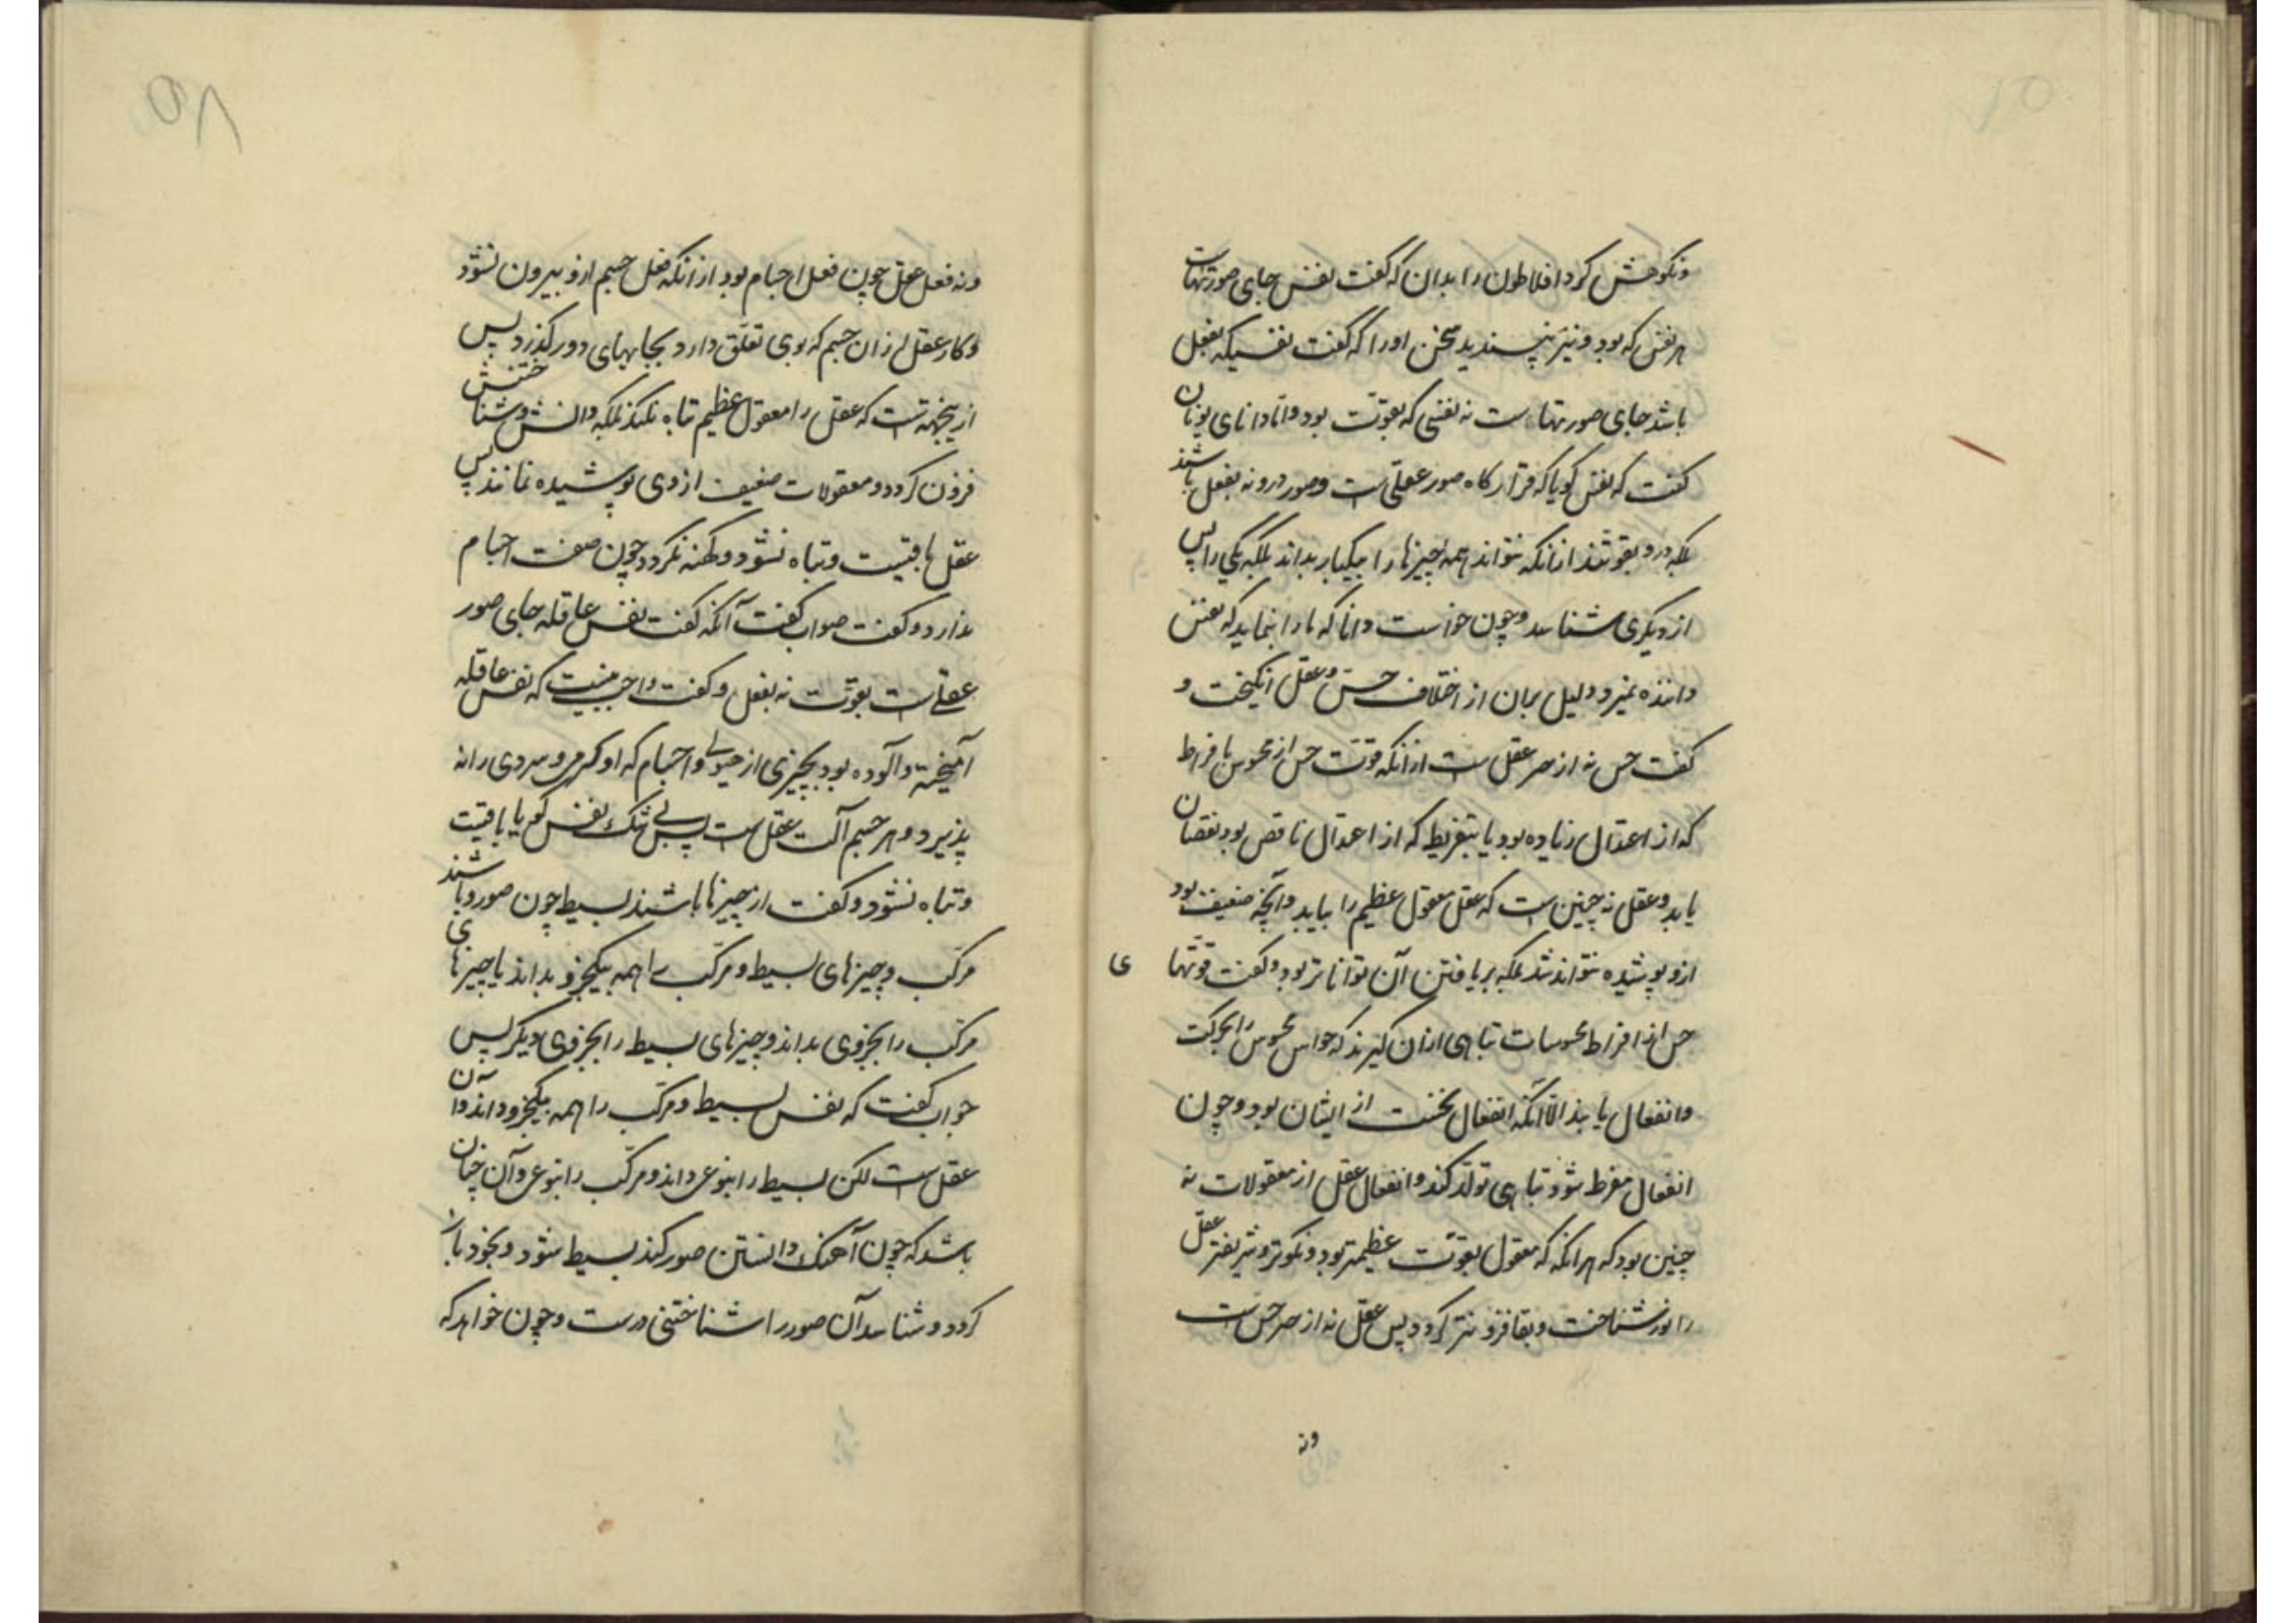 ونکوهش کرد افلاطون را بدان که گفت نفس جای صورتهاست
هر نفس که بود و نیز نپسندید سخن اورا که گفت نفسیکه بفعل
باشد جای صورتهاست نه نفسی که بقوت بود و اما دانای یونان
گفت که نفس گویا که قرارگاه صور عقلی است و صور درو نه بفعل باشند
بلکه درو بقوتند ازانکه نتواند همه چیزها را بیکبار بداند بلکه یکی را پس
از دیگری شناسد و چون خواست دانا که ما را بنماید که نفس
داننده نمیرد دلیل بران از اختلاف حس و عقل انگیخت و
گفت حس نه از سر عقل است ازانکه قوت حس از محسوس بافراط
که از اعتدال زیاده بود یا بتفریط که از اعتدال ناقص بود نقصان
یابد و عقل نه چنین است که عقل معقول عظیم را بیابد و آنچه ضعیف بود
ازو پوشیده نتواند شد بلکه بر یافتن آن تواناتر بود و گفت قوتها
ی
حس از افراط محسوسات تباهی ازان گیرند که حواس محسوس را بحرکت
و انفعال یابند الا آنکه انفعال نخست از ایشان بود و چون
انفعال مفرط شود تباهی تولد کند و انفعال عقل از معقولات نه
چنین بود که هرانکه که معقول بقوت عظیمتر بود و نکوتر و شریفتر عقل
را نور شناخت و بقا فزونتر گردد پس عقل نه از سر حس است
ونه
ونه فعل عقل چون فعل اجسام بود ازانکه فعل جسم ازو بیرون نشود
و کار عقل ازان جسم که بوی تعلق دارد بجایهای دور گذرد پس
ازینجهتست که عقل را معقول عظیم تباه نکند بلکه دانش و شناختنش
فزون گردد و معقولات ضعیف از وی پوشیده نمانند پس
عقل باقیست و تباه نشود و کهنه نگردد چون صفت اجسام
ندارد و گفت صواب گفت آنکه گفت نفس عاقله جای صور
عقلی است بقوت نه بفعل و گفت واجب نیست که نفس عاقله
آمیخته و آلوده بود بچیزی از هیولی و اجسام که او گرمی و سردی را نه
پذیرد و هر جسم آلت عقل است پس بی شک نفس گویا باقیست
و تباه نشود و گفت از چیزها باشند بسیط چون صور و باشند
مرکب و چیزهای بسیط و مرکب را همه بیکجزو بداند یا چیزهای
مرکب را بجزوی بداند و چیزهای بسیط را بجزوی دیگر پس
جواب گفت که نفس بسیط و مرکب را همه بیکجزو داند و آن
عقل است لکن بسیط را بنوعی داند و مرکب را بنوعی و آن چنان
باشد که چون آهنگ دانستن صور کند بسیط شود و بخود باز
گردد و شناسد آن صور را شناختنی درست و چون خواهد که